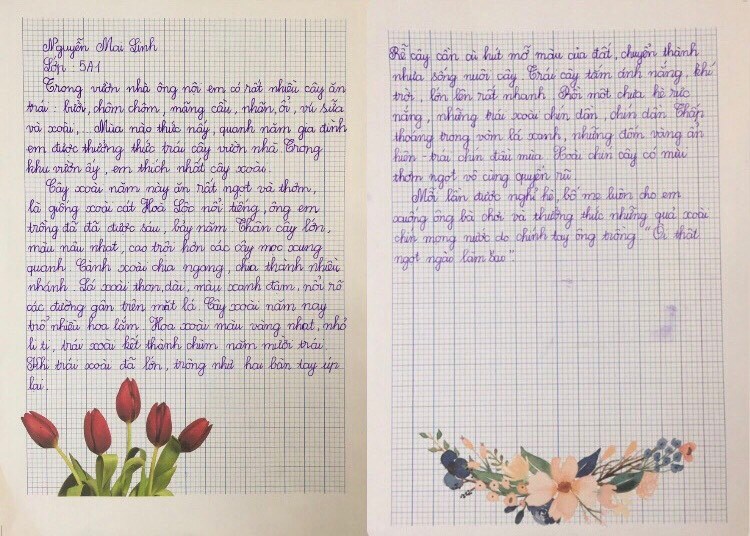 Nguyễn Mai Linh
Lớp : 5A1
Trong vườn nhà ông nội em có rất nhiều cây ăn
trái : bưởi, chôm chôm, mãng cầu, nhãn, ổi, vú sữa
và xoài,... Mùa nào thức nấy, quanh năm gia đình
em được thưởng thức trái cây vườn nhà. Trong
khu vườn ấy, em thích nhất cây xoài.
Cây xoài năm này ăn rất ngọt và thơm,
là giống xoài cát Hoà Lộc nổi tiếng, ông em
trồng đã đã được sáu, bảy năm. Thân cây lớn,
màu nâu nhạt, cao trội hơn các cây mọc xung
quanh. Cành xoài chìa ngang, chia thành nhiều
nhánh. Lá xoài thon, dài, màu xanh đậm, nổi rõ
các đường gân trên mặt lá. Cây xoài năm nay
trổ nhiều hoa lắm. Hoa xoài màu vàng nhạt, nhỏ
li ti, trái xoài kết thành chùm năm mười trái.
Khi trái xoài đã lớn, trông như hai bàn tay úp
lại.
Rễ cây cần cù hút mỡ màu của đất, chuyển thành
nhựa sống nuôi cây. Trái cây tắm ánh nắng, khí
trời, lớn lên rất nhanh. Rồi một chưa hè rực
nắng, những trái xoài chín dần, chín dần. Thấp
thoáng trong vòm lá xanh, những đốm vàng ẩn
hiện - trái chín đầu mùa. Xoài chín cây có mùi
thơm ngọt vô cùng quyến rũ.
Mỗi lần được nghỉ hè, bố mẹ luôn cho em
xuống ông bà chơi và thưởng thức những quả xoài
chín mọng nước do chính tay ông trồng. "Ôi thật
ngọt ngào làm sao"